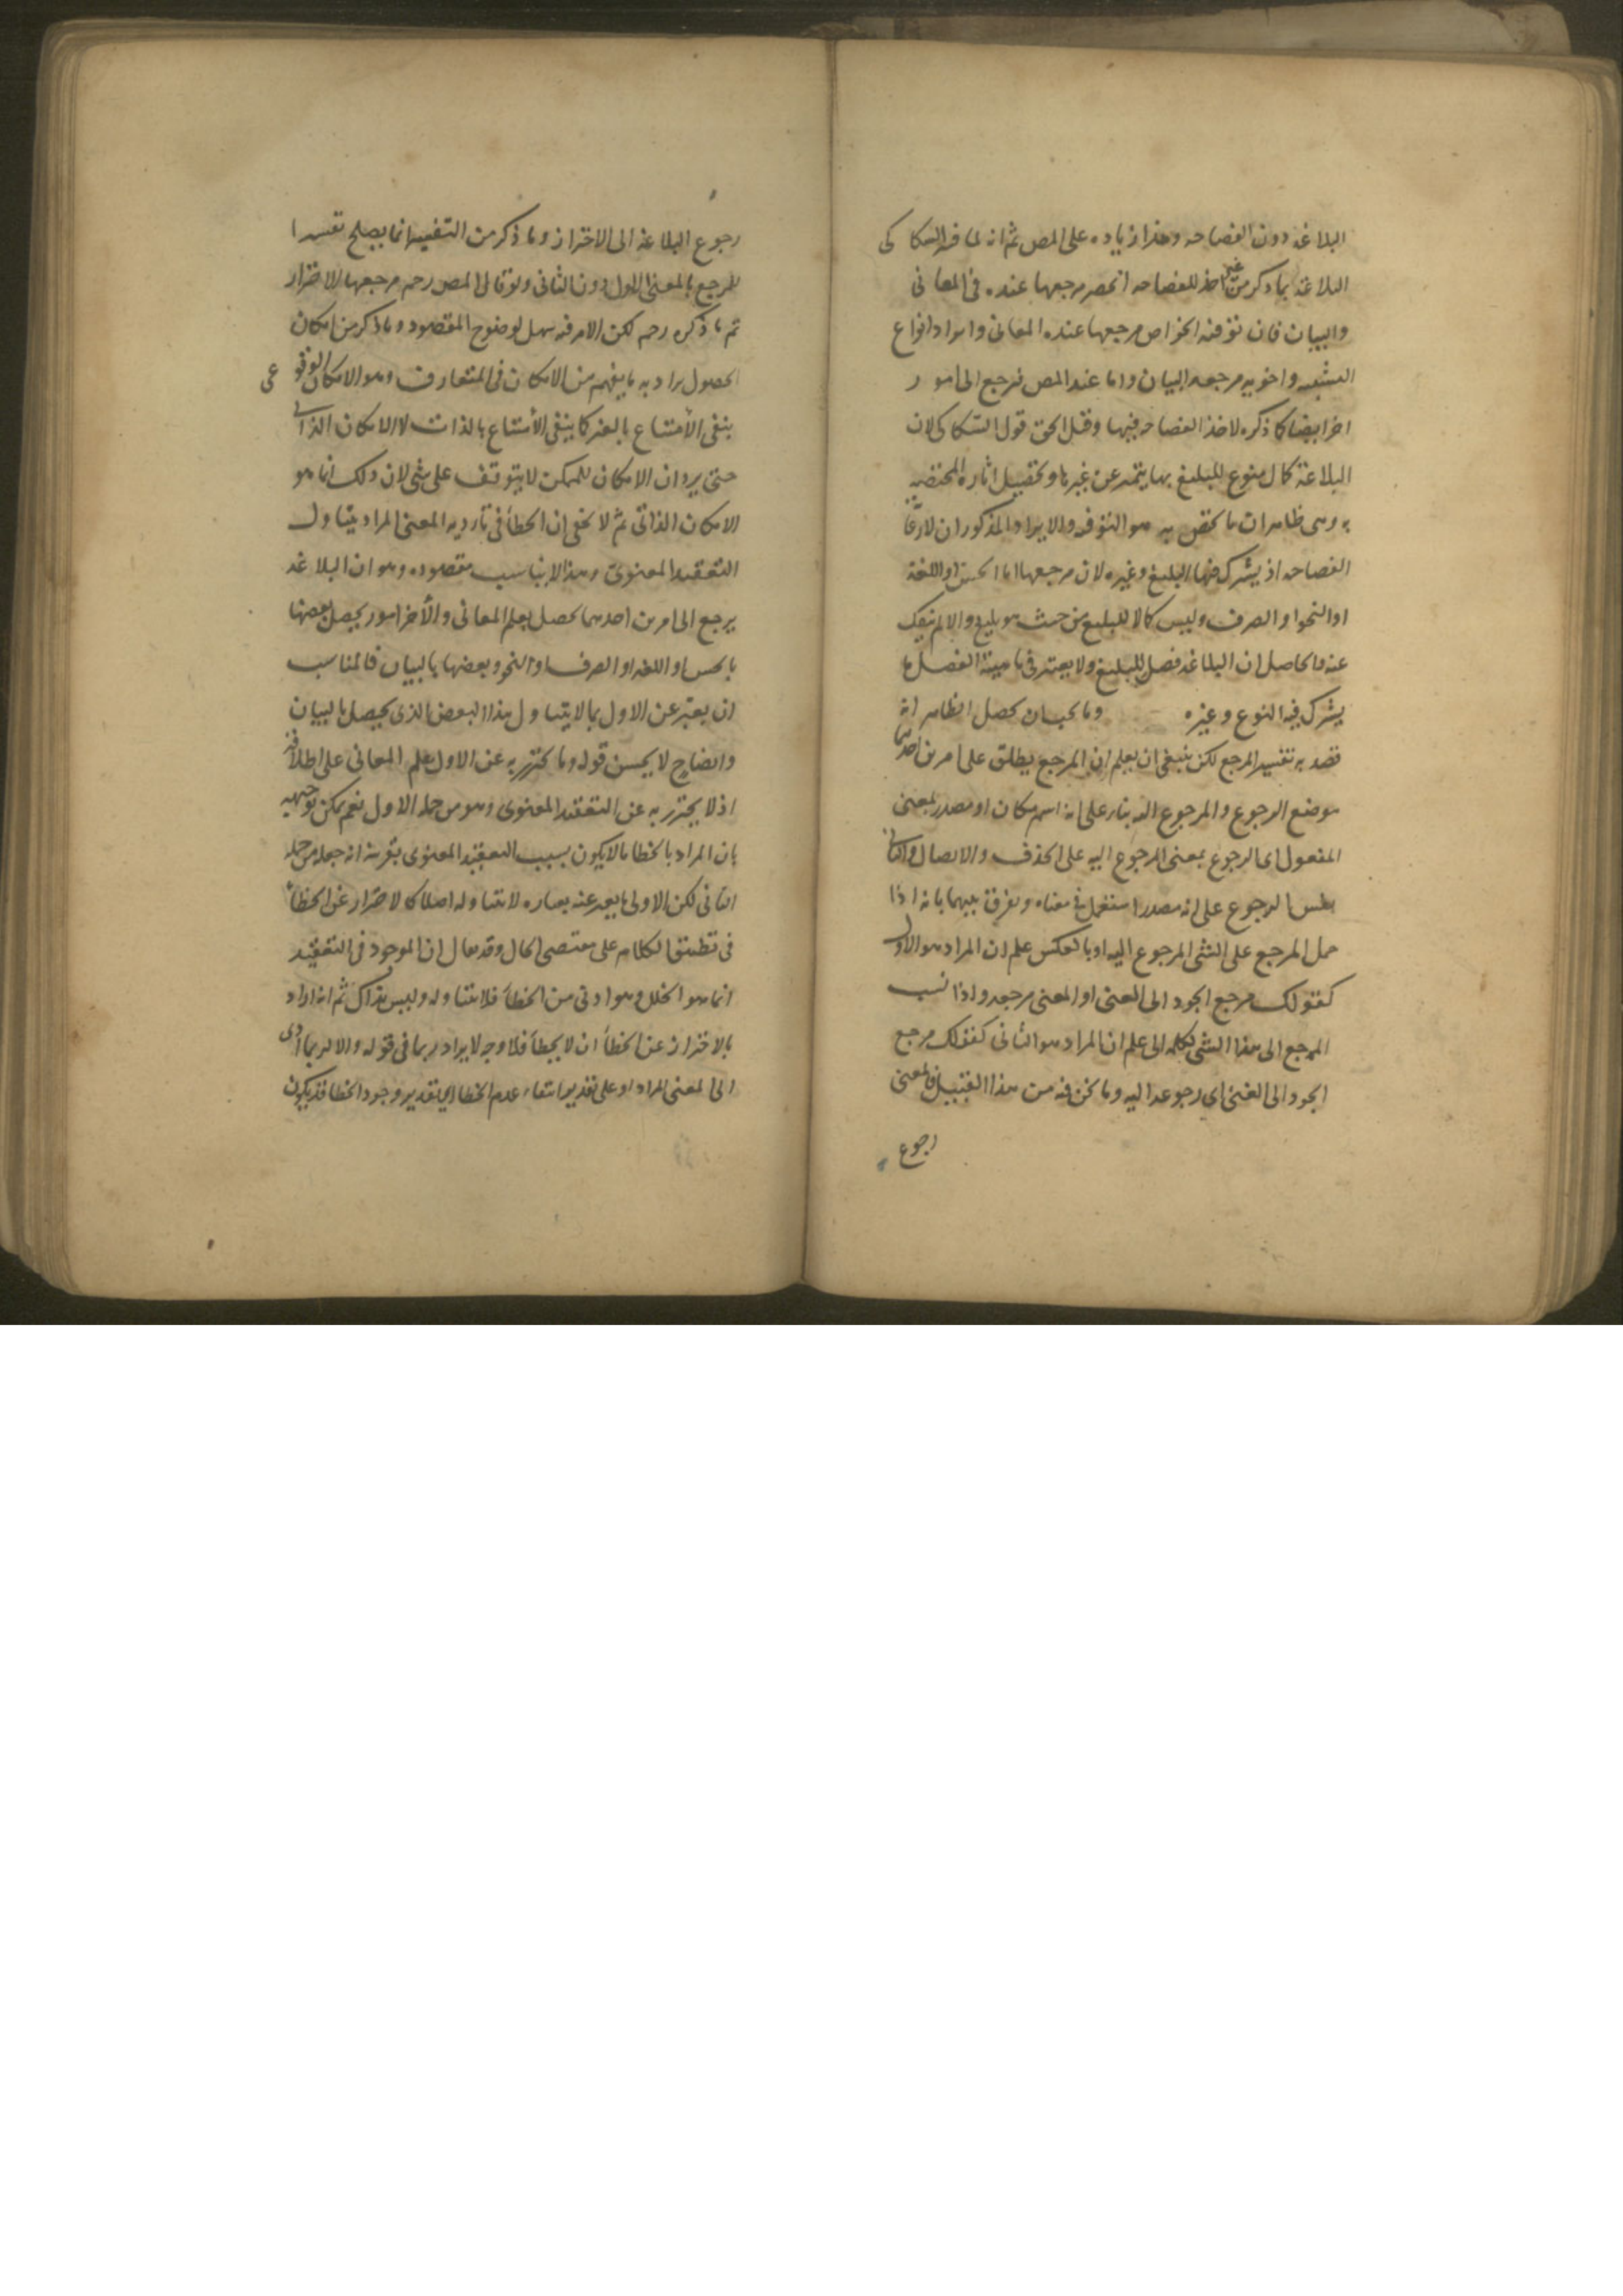 البلاغه دون الفصاحه وهذا زياده على المص ثم انه لما فسر السكاكى
البلاغه بما ذكر من غير اخذ للفصاحه انحصر مرجعها عنده فى المعانى
والبيان فان توفيه الخواص مرجعها عنده المعانى وايراد انواع
التشبيه واخويه مرجعه البيان واما عند المص فيرجع الى امور
اخر ايضا كما ذكره لاخذ الفصاحه فيها وقيل الحق قول السكاكى لان
البلاغة كمال منوع للبليغ بها يتميز عن غيره وتحصيل اثاره المختصه
به وهى ظاهرات ما يختص به هو التوفيه والايراد المذكوران لا
الفصاحه اذ يشترك فيها البليغ وغيره لان مرجعها اما الحس او اللغة
او النحو او الصرف وليس كمالا للبليغ من حيث هو بليغ والا لم ينفك
عنه فالحاصل ان البلاغه فصل للبليغ ولا يعتبر فى ماهية الفصل ما
يشترك فيه النوع وغيره وما يجب ان يحصل الظاهر انه
قصد به تفسير المرجع لكن ينبغى ان يعلم ان المرجع يطلق على امرين احدهما
موضع الرجوع والمرجوع اليه بناء على انه اسم مكان او مصدر بمعنى
المفعول اى الرجوع بمعنى المرجوع اليه على الحذف والايصال والثانى
نفس الرجوع على انه مصدر استعمل فى معناه ويفرق بينهما بانه اذا
حمل المرجع على الشى المرجوع اليه او بالعكس علم ان المراد هو الاول
كقولك مرجع الجود الى الغنى او الغنى مرجعه واذا نسب
المرجع الى هذا الشى بكلمه الى علم ان المراد هو الثانى كقولك مرجع
الجود الى الغنى اى رجوعه اليه وما نحن فيه من هذا القبيل فالمعنى
رجوع
رجوع البلاغه الى الاحتراز وما ذكر من التفسير انما يصلح تفسيرا
للمرجع بالمعنى الاول دون الثانى ولو قال المص رحم مرجعها الاحتراز
تم ما ذكره رحم لكن الامر فيه سهل لوضوح المقصود وما ذكر من امكان
الحصول يراد به ما يفهم من الامكان فى المتعارف وهو الامكان الوقوعى
ينفى الامتناع بالغير كما ينفى الامتناع بالذات لا الامكان الذاتى
حتى يرد ان الامكان للممكن لا يتوقف على شى لان ذلك انما هو
الامكان الذاتى ثم لا يخفى ان الخطأ فى تاديه المعنى المراد يتناول
التعقيد المعنوى وهذا لا يناسب مقصوده وهو ان البلاغه
يرجع الى امرين احدهما يحصل بعلم المعانى والأخر امور يحصل بعضها
بالحس او اللغه او الصرف او النحو وبعضها بالبيان فالمناسب
ان يعبر عن الاول بما لا يتناول هذا البعض الذى يحصل بالبيان
وايضا ح لا يحسن قوله وما يحترز به عن الاول علم المعانى على اطلاقه
اذ لا يحترز به عن التعقيد المعنوى وهو من جمله الاول نعم يمكن توجيهه
بان المراد بالخطا ما لا يكون بسبب التعقيد المعنوى بقرينة انه جعله من جمله
الثانى لكن الاولى ما يعبر عنه بعباره لا تتناوله اصلا كالاحتراز عن الخطأ
فى تطبيق الكلام على مقتضى الحال وقد يقال ان الموجود فى التعقيد
انما هو الخلل وهو ادنى من الخطأ فلا يتناوله وليس بذاك ثم انه اراد
بالاحتراز عن الخطأ ان لا يخطأ فلا وجه لايراد ربما فى قوله والا لربما ادى
الى المعنى المراد او على تقدير انتفاء عدم الخطا اى تقدير وجود الخطا قد يكون